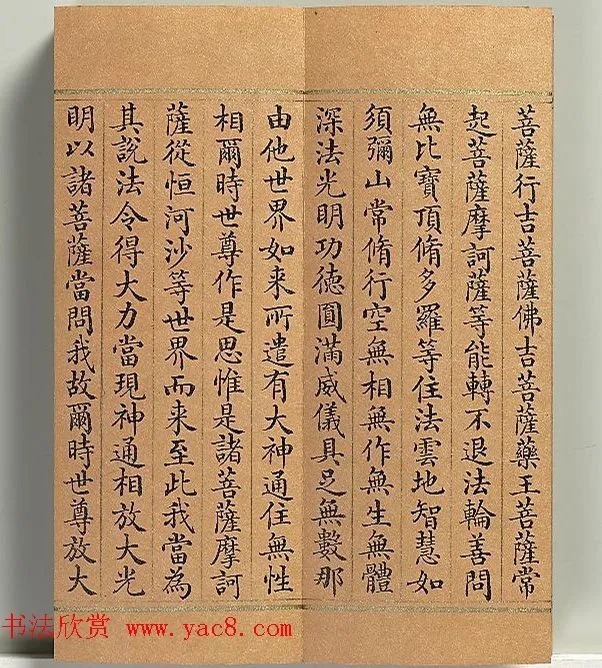 菩薩行吉菩薩佛吉菩薩藥王菩薩常
起菩薩摩訶薩等能轉不退法輪善問
無比寶頂脩多羅等住法雲地智慧如
須彌山常脩行空無相無作無生無體
深法光明功德圓滿威儀具足無數那
由他世界如来所遣有大神通住無性
相爾時世尊作是思惟是諸菩薩摩訶
薩從恒河沙等世界而来至此我當為
其說法令得大力當現神通相放大光
明以諸菩薩當問我故爾時世尊放大
书法欣赏 www.yac8.com